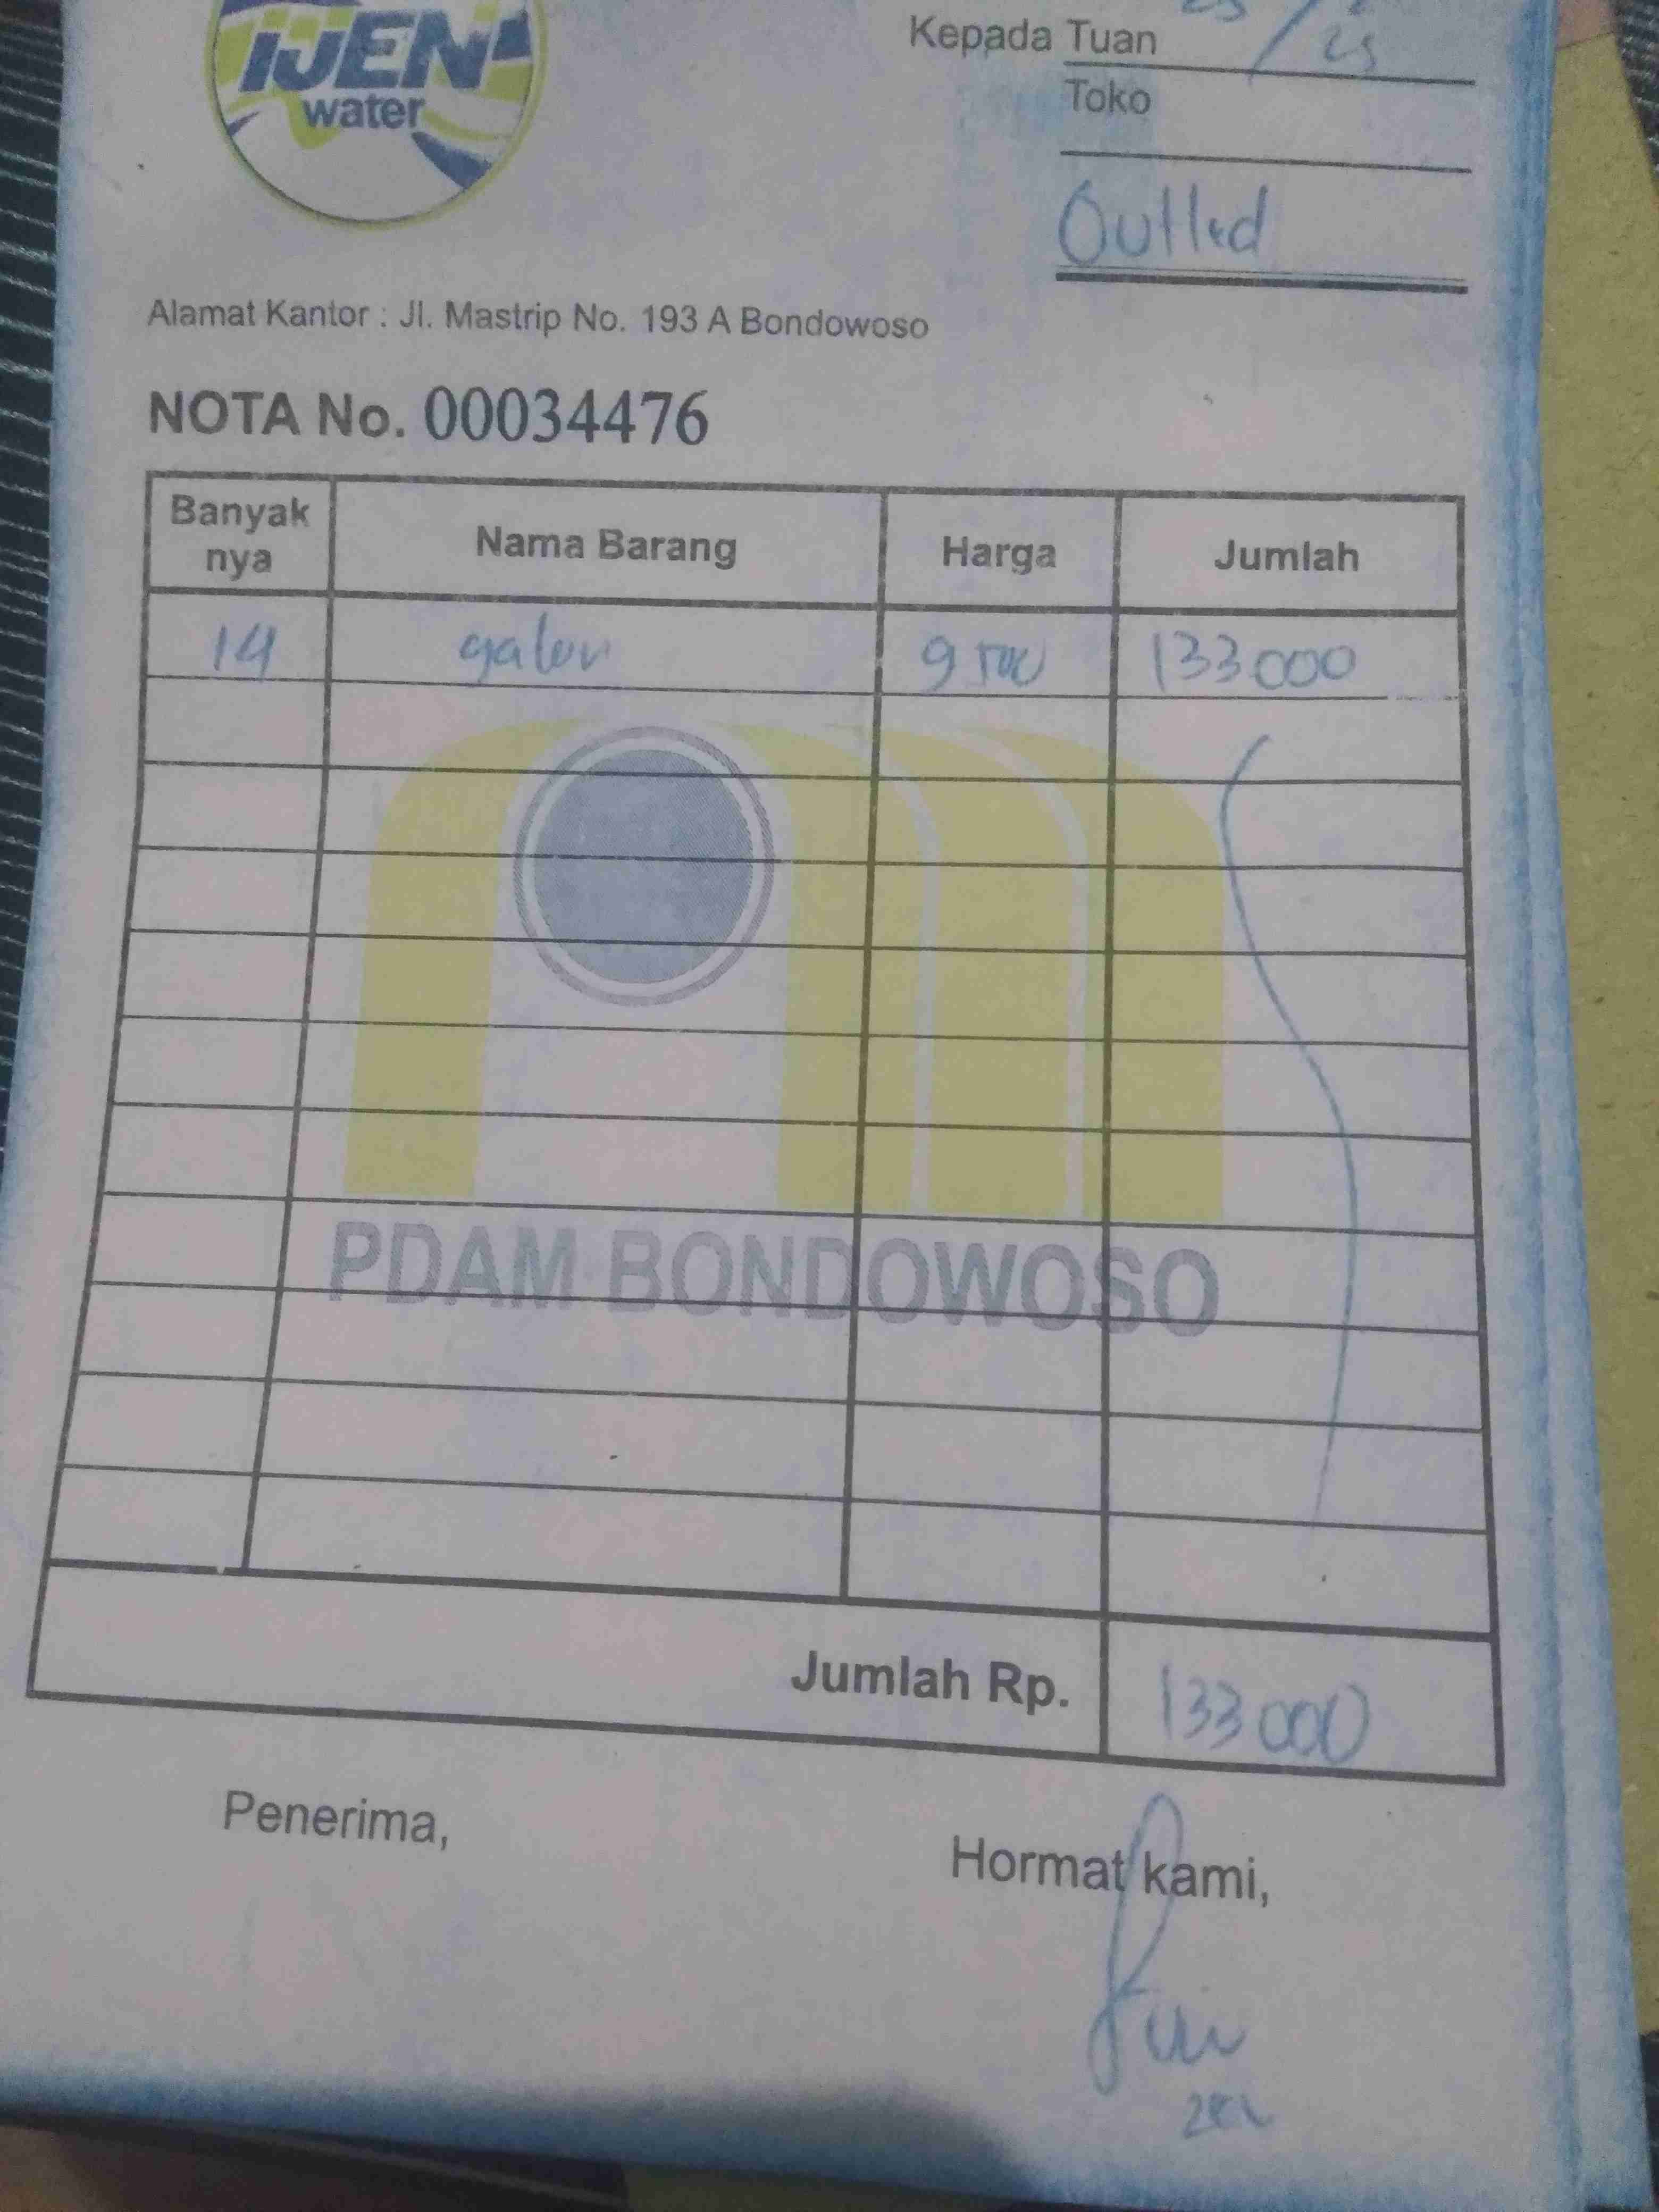 IJEN
water
Kepada Tuan
/ 25
Toko
Outled
Alamat Kantor : Jl. Mastrip No. 193 A Bondowoso
NOTA No. 00034476
Banyak nya Nama Barang Harga Jumlah
14 galon 9500 133000
PDAM BONDOWOSO
Jumlah Rp. 133000
Penerima,
Hormat kami,